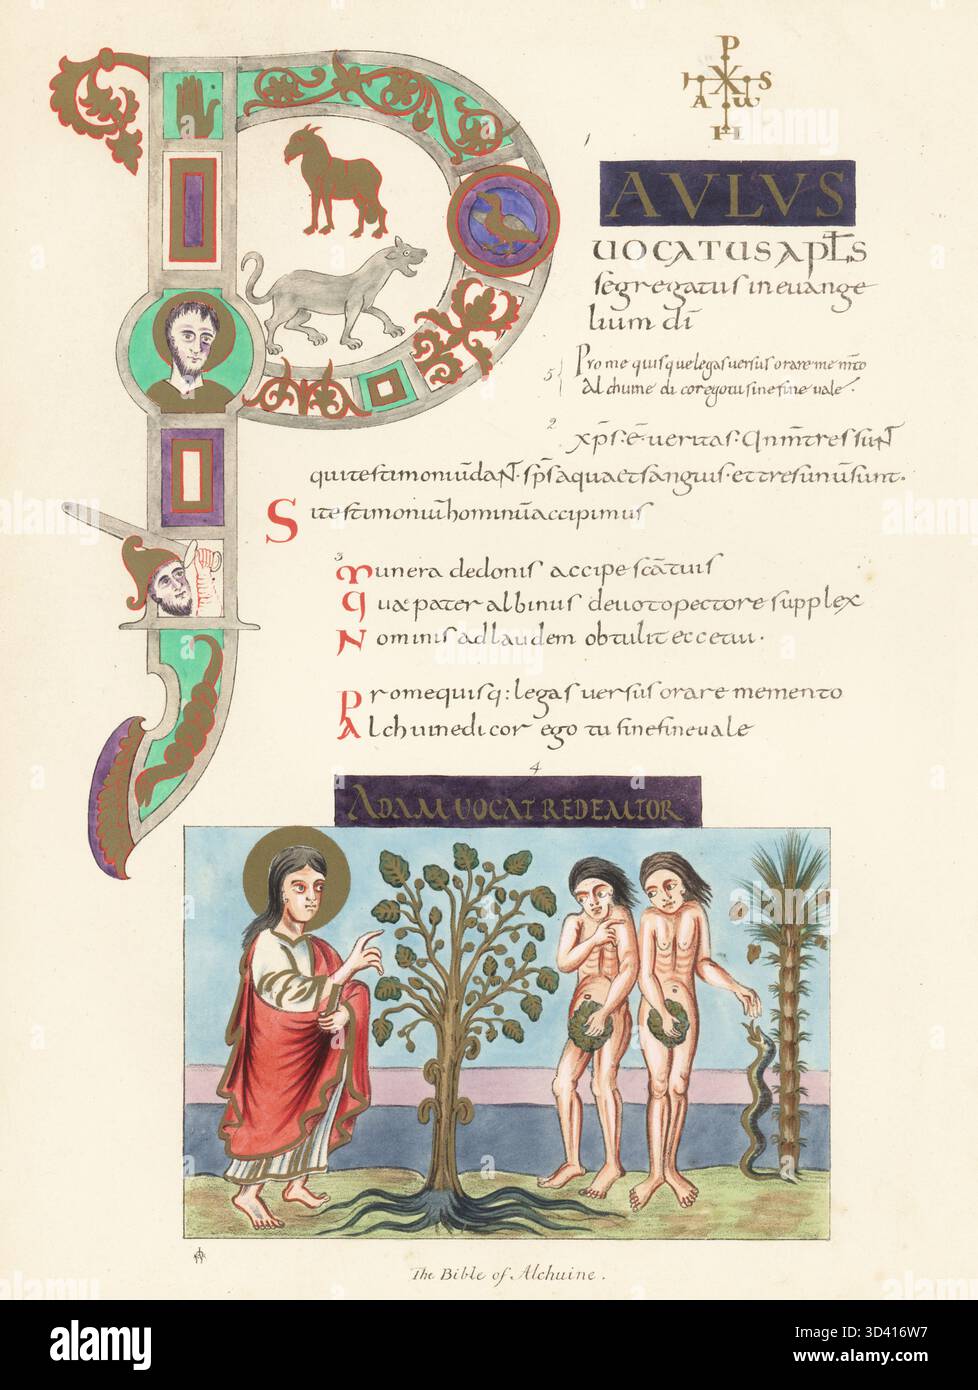 P
S
A
ω
H
P
AVLVS
UOCATUS APLS
segregatus in euange
lium di
5
Pro me quisque legas versus orare memto
Alchuine dicor ego tu sine fine vale.
2
xps: e ueritas: Qm tres sunt
qui testimoniū dant. sps aqua et sanguis. et tres unū sunt.
Si testimoniū hominū accipimus
3
Munera dedonis accipe scā tuis
Quae pater albinus deuoto pectore supplex
Nominis ad laudem obtulit ecce tui.
Pro me quisq: legas uersus orare memento
Alchuine dicor ego tu sine fine uale
4
ADAM UOCAT REDEMTOR
The Bible of Alchuine.
alamy
Image ID: 3D416W7
www.alamy.com